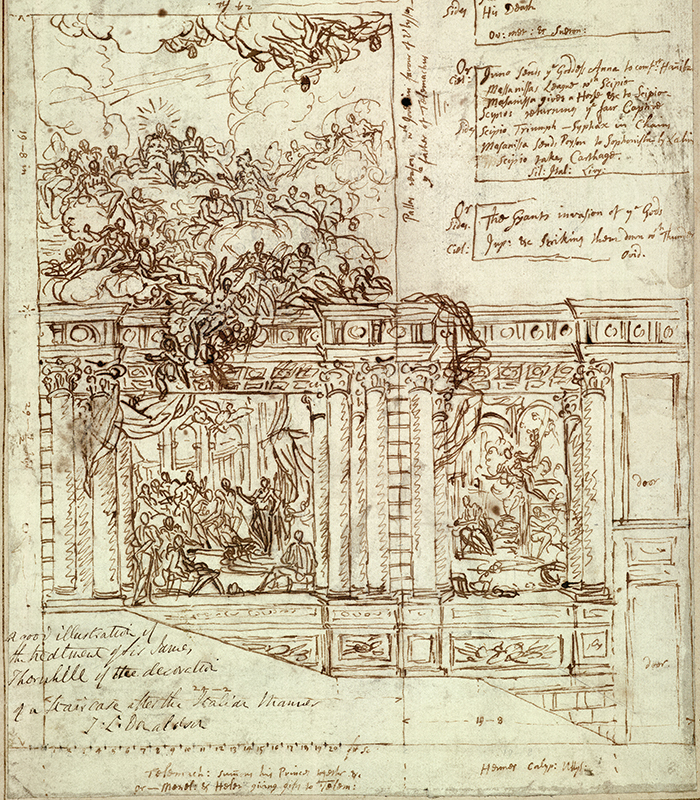 Sides
His Death
Ov: met: & Sueton:
Or
Ciel:
Juno sends yᵉ Goddess Anna to comfᵗ
Masanissas League wᵗʰ Scipio
Masanissa gives a Horse &c to Scipio
Scipios returning yᵉ fair Captive
Sides
Scipio Triumph - Syphax in Chains
Masanissa sends Poyson to Sophonisba by
Scipio takes Carthage.
Sil: Ital: Livy:
Or
Sides.
The Gyants invasion of yᵉ Gods
Ciel:
Jup: &c striking them down wᵗʰ
Ovid.
Pallas in favour of Ulysses
yᵉ father of Telemachus
19-8
door
door
a good illustration of
the treatment of Sir James
Thornhille of the decoration
of a Staircase after the Italian Manner
T. L. Donaldson
24-2
19-8
1 2 3 4 5 6 7 8 9 10 11 12 13 14 15 16 17 18 19 20
Telemach:
or - Menel: & Helen giving gifts to Telem:
Hermes Calyp: Ulyss: